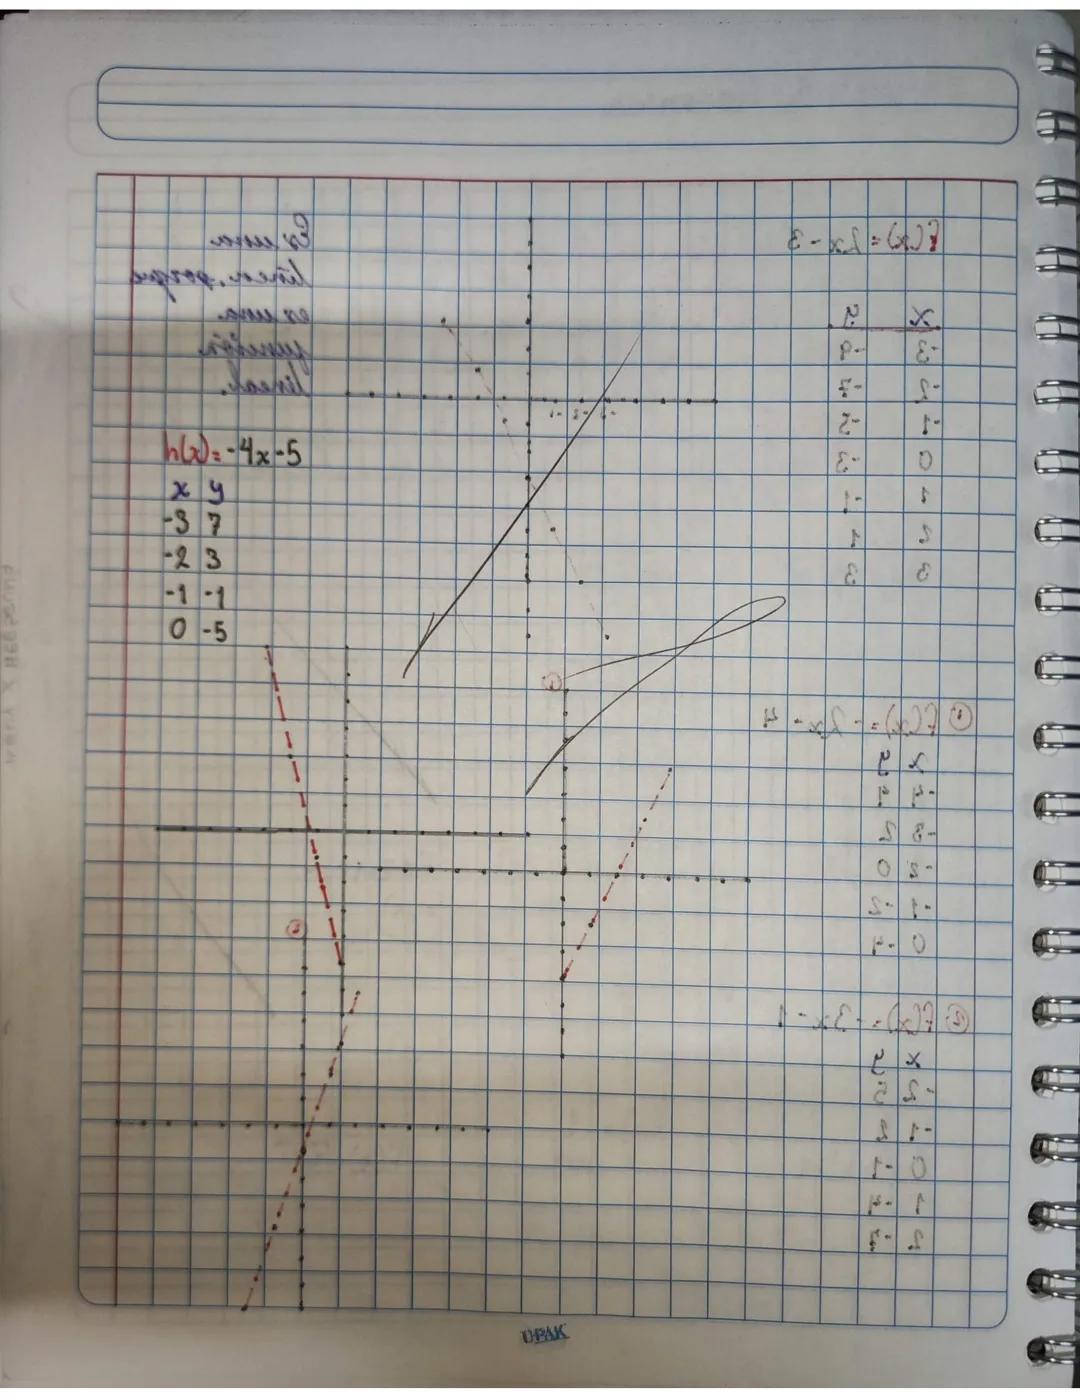 f(x)=2x-3
x y
-3 -9
-2 -7
-1 -5
0 -3
1 -1
2 1
3 3
Es una
línea, porque
es una
función
lineal.
h(x)=-4x-5
x y
-3 7
-2 3
-1 -1
0 -5
f(x)=-2x-4
x y
-4 4
-3 2
-2 0
-1 -2
0 -4
f(x)=-3x-1
x y
-2 5
-1 2
0 -1
1 -4
2 -7
UPAK